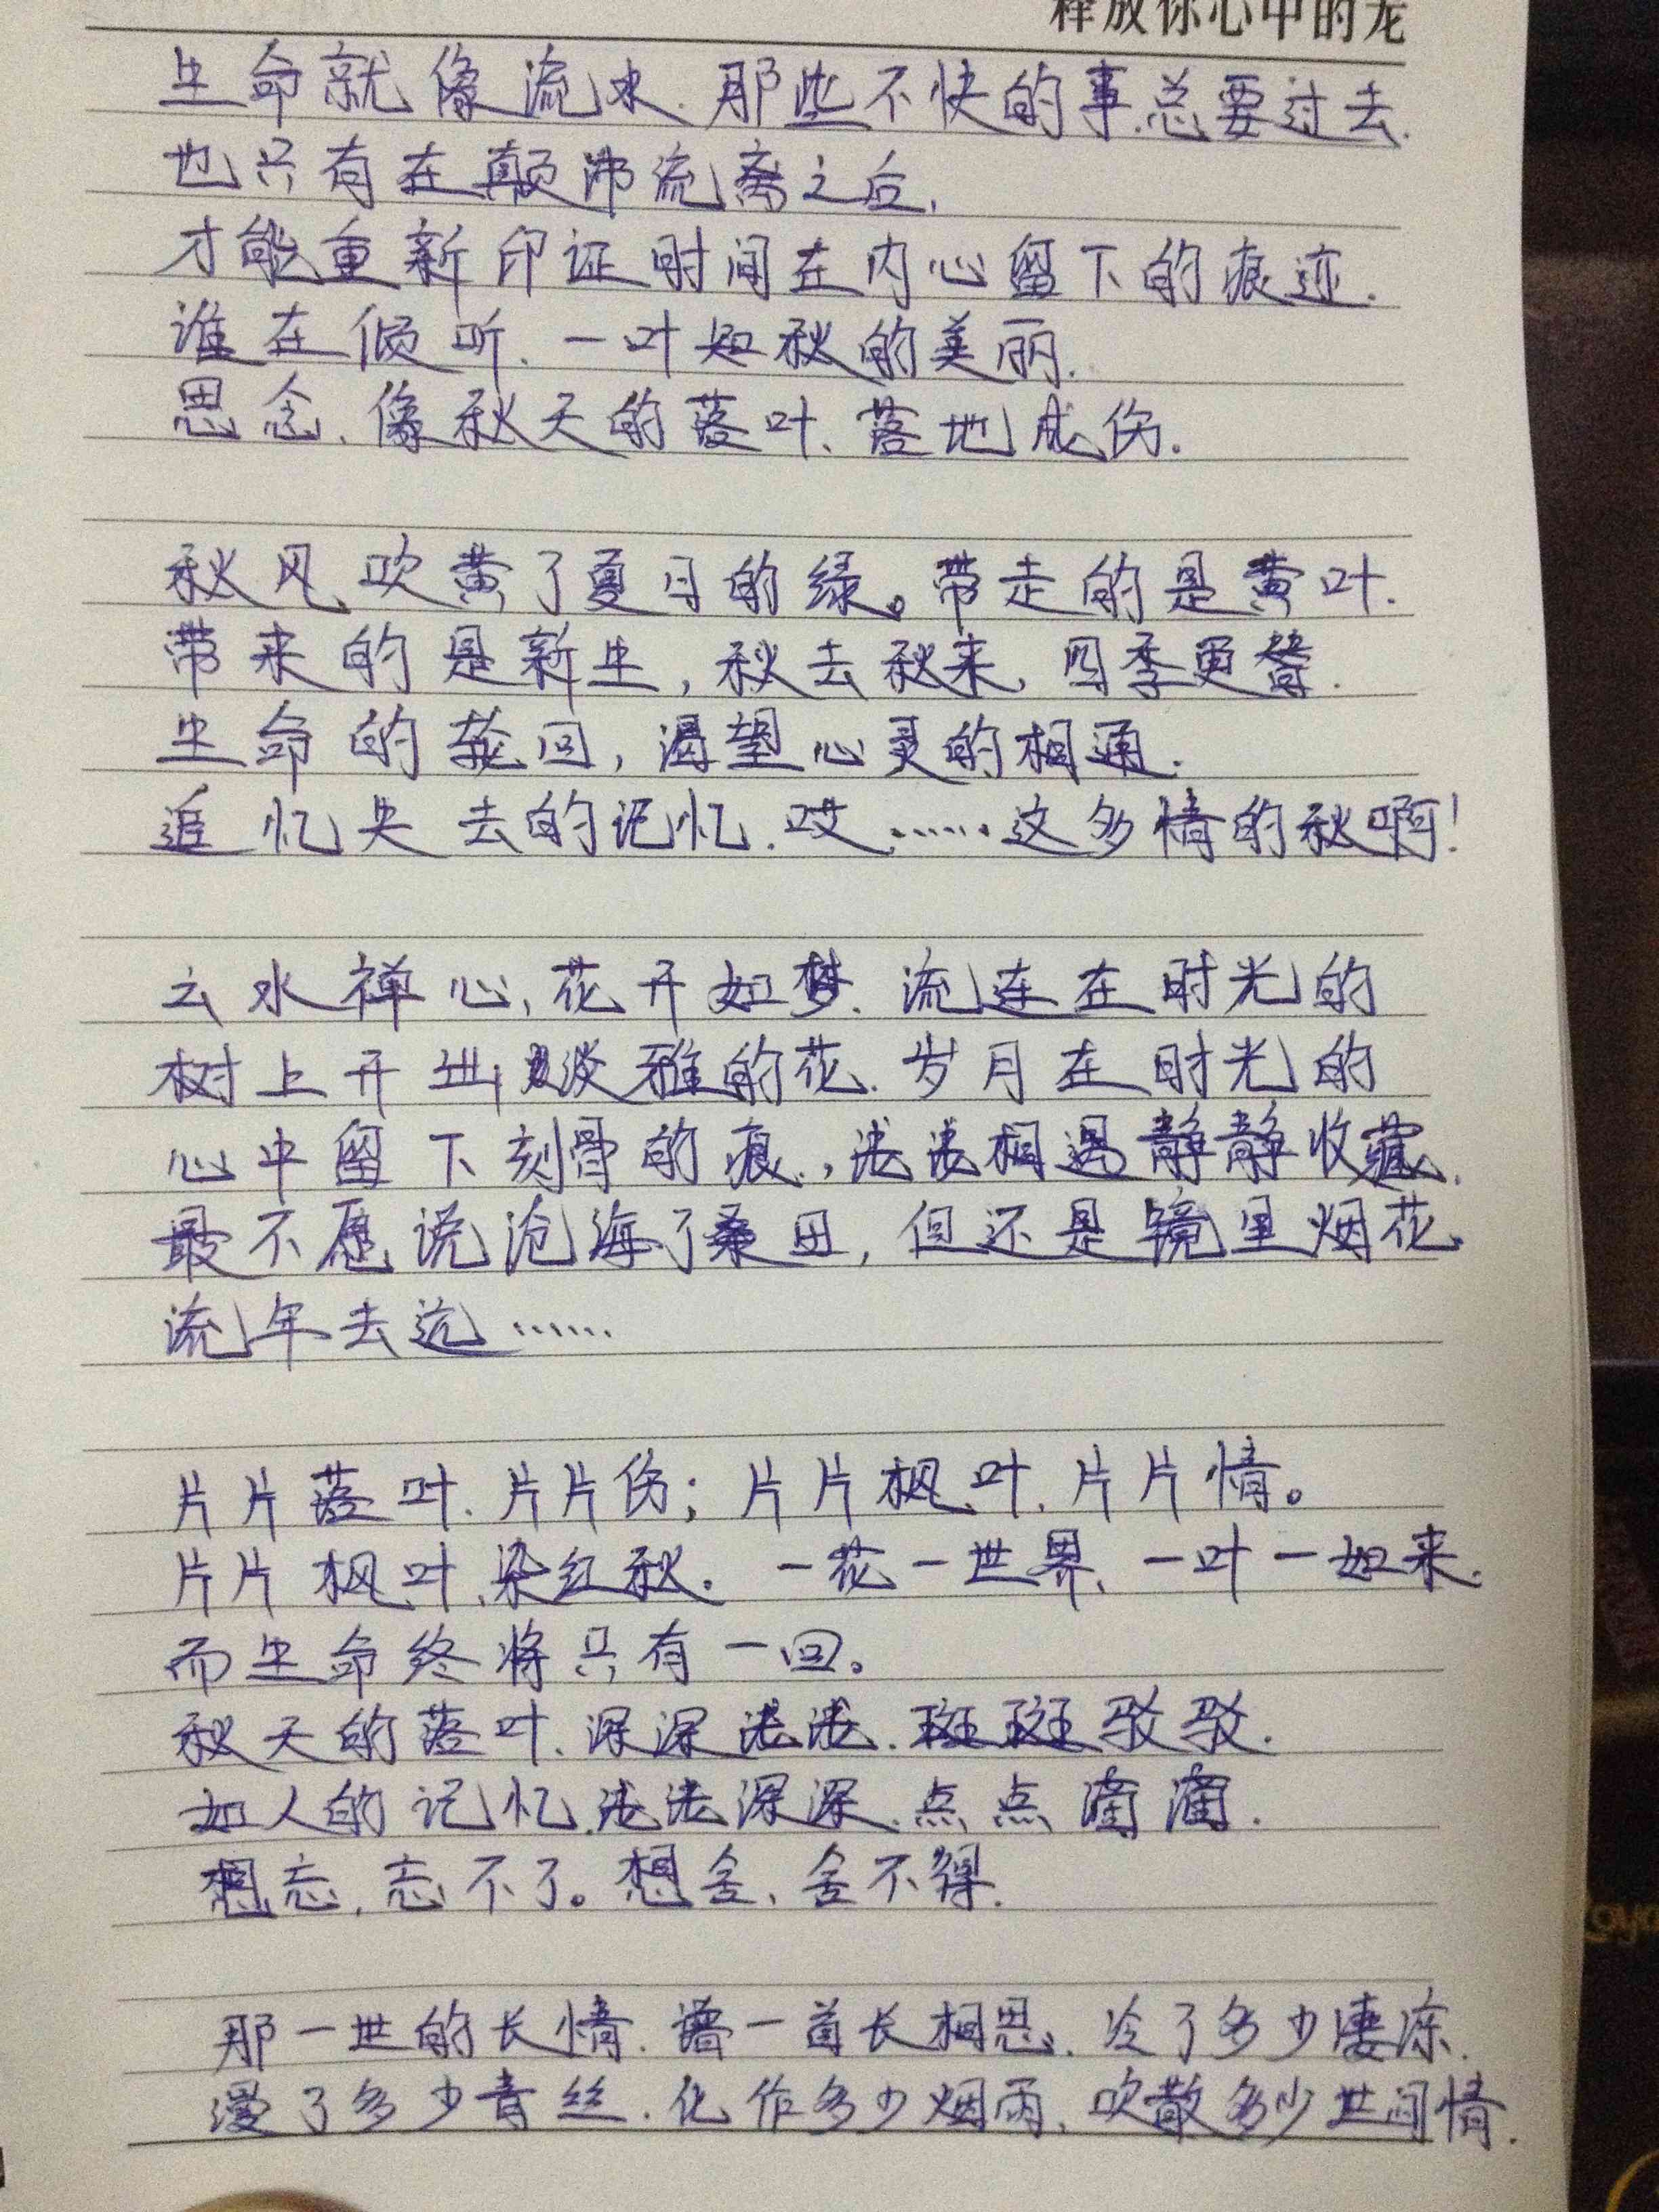 释放你心中的龙
生命就像流水.那些不快的事.总要过去.
也只有在颠沛流离之后,
才能重新印证时间在内心留下的痕迹.
谁在倾听、一叶知秋的美丽.
思念、像秋天的落叶、落地成伤.
秋风吹黄了夏日的绿。带走的是黄叶.
带来的是新生,秋去秋来,四季更替.
生命的轮回,渴望心灵的相通.
追忆失去的记忆.哎……这多情的秋啊!
云水禅心,花开如梦.流连在时光的
树上开出淡雅的花.岁月在时光的
心中留下刻骨的痕.,浅浅相遇静静收藏.
最不愿说沧海了桑田,但还是镜里烟花
流年去远……
片片落叶、片片伤;片片枫叶、片片情。
片片枫叶.染红秋.一花一世界、一叶一如来.
而生命终将只有一回。
秋天的落叶、深深浅浅.斑斑驳驳.
如人的记忆.浅浅深深.点点滴滴.
想忘,忘不了。想舍、舍不得.
那一世的长情.谱一首长相思、冷了多少凄凉.
漫了多少青丝.化作多少烟雨、吹散多少世间情.